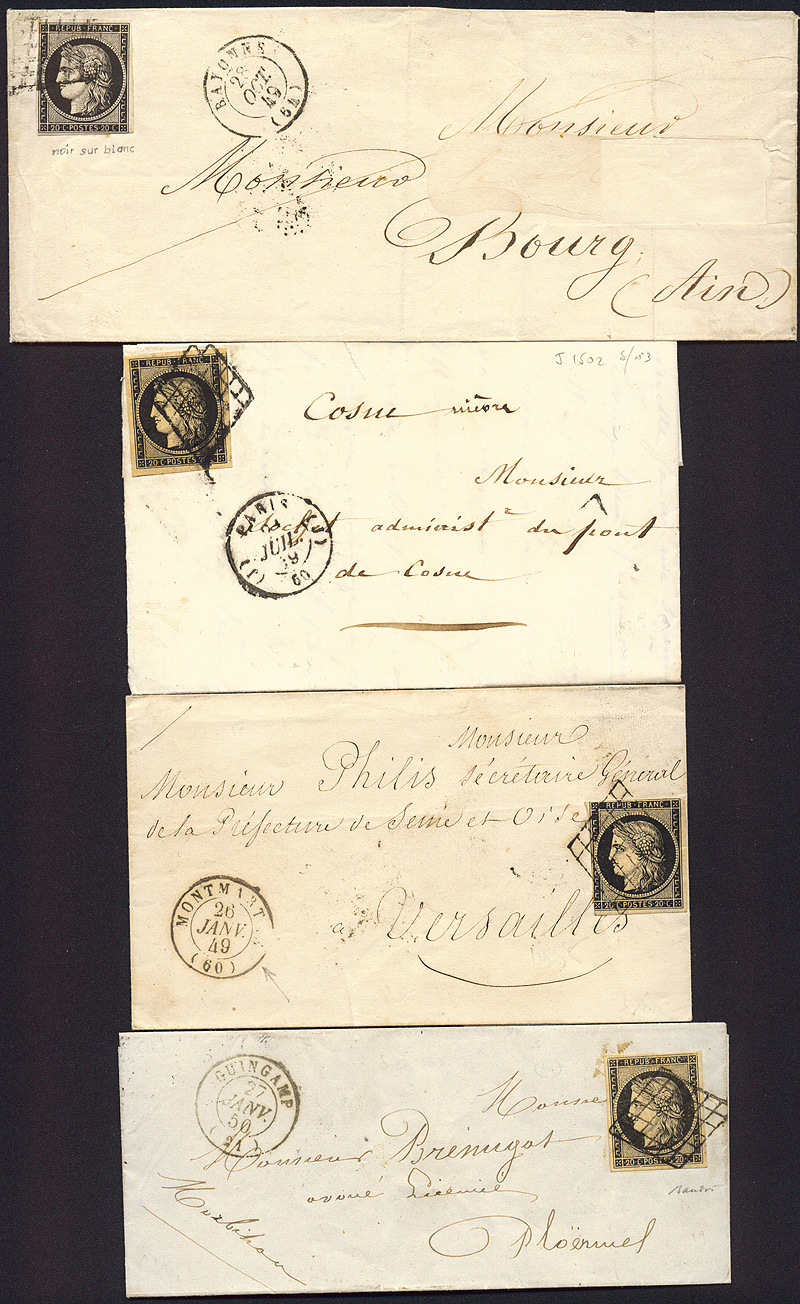 REPUB FRANC
20 C POSTES 20 C
noir sur blanc
BAYONNE
28
OCT.
49
(64)
Monsieur
Monsieur
Bourg,
(Ain)
REPUB FRANC
20 C POSTES 20 C
J 1502
Cosne nièvre
Monsieur
administ.r du pont
de Cosne
PARIS
JUIL.
49
60
(J)
(J)
Monsieur
Monsieur Philis Sécrétaire Général
de la Préfecture de Seine et Oise
REPUB FRANC
20 C POSTES 20 C
MONTMART
26
JANV.
49
(60)
a Versailles
GUINGAMP
27
JANV.
50
(21)
REPUB FRANC
20 C POSTES 20 C
Monsieur Brénugat
avoué Licencié
Morbihan
Ploërmel